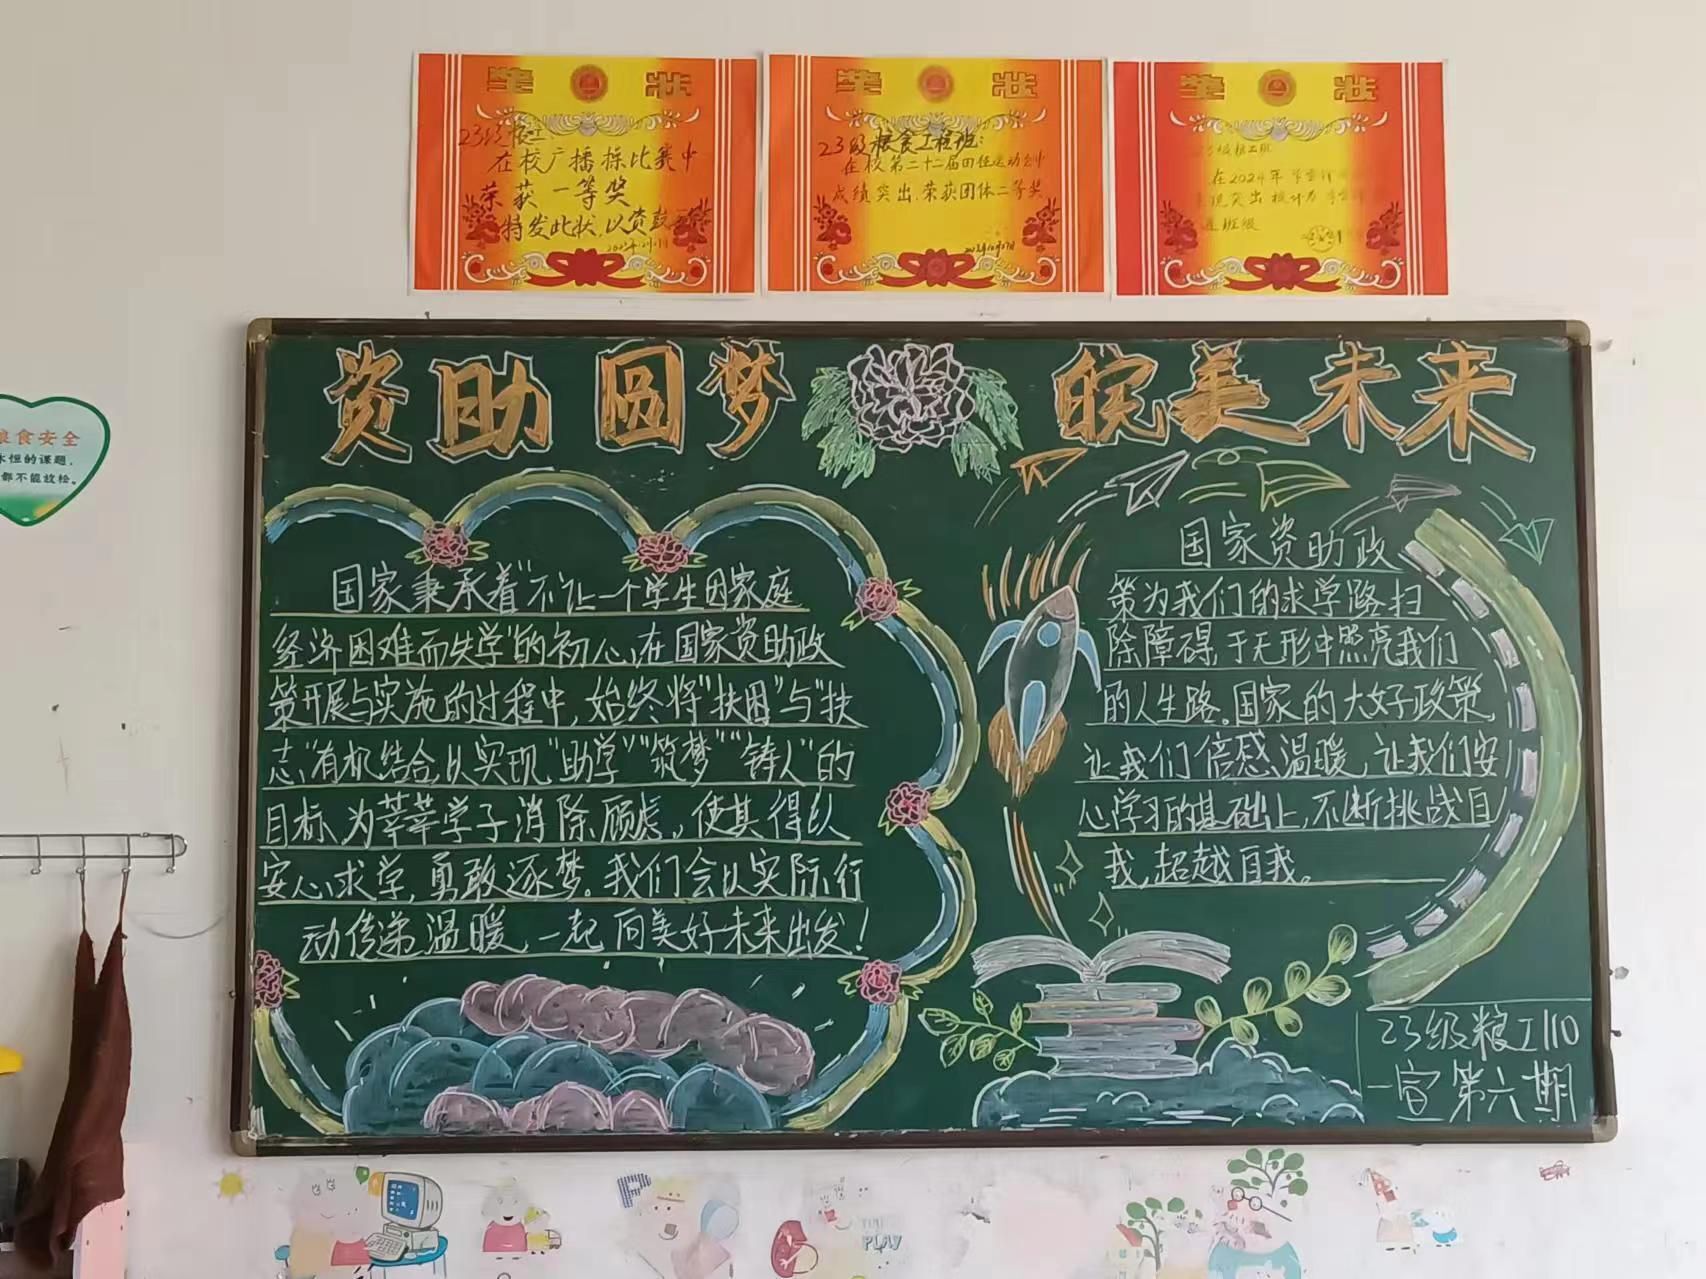 奖 状
23级粮工
在校广播操比赛中
荣获一等奖
特发此状,以资鼓
奖 状
23级粮食工程班:
在校第二十二届田径运动会中
成绩突出,荣获团体二等奖
奖 状
23级粮工班
在2024年
现突出 被评为
进班级
粮食安全
永恒的课题,
都不能放松。
资助圆梦 皖美未来
国家秉承着“不让一个学生因家庭
经济困难而失学”的初心,在国家资助政
策开展与实施的过程中,始终将“扶困”与“扶
志”有机结合,以实现“助学”“筑梦”“铸人”的
目标,为莘莘学子消除顾虑,使其得以
安心求学,勇敢逐梦。我们会以实际行
动传递温暖,一起向美好未来出发!
国家资助政
策为我们的求学路扫
除障碍,于无形中照亮我们
的人生路。国家的大好政策,
让我们倍感温暖,让我们安
心学习的基础上,不断挑战自
我,超越自我。
23级粮工110
宣第六期
P
PLAY